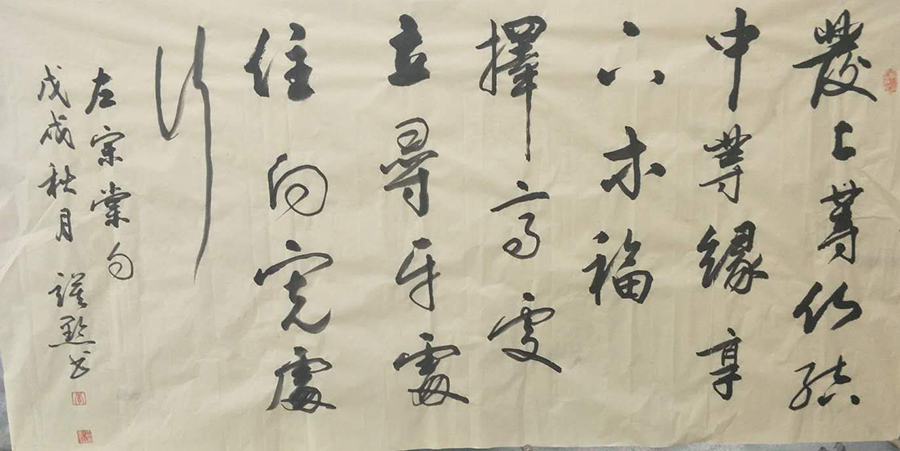 發上等願結
中等緣享
下等福
擇高處
立尋平處
住向寬處
行
左宗棠句
戊戌秋月 书